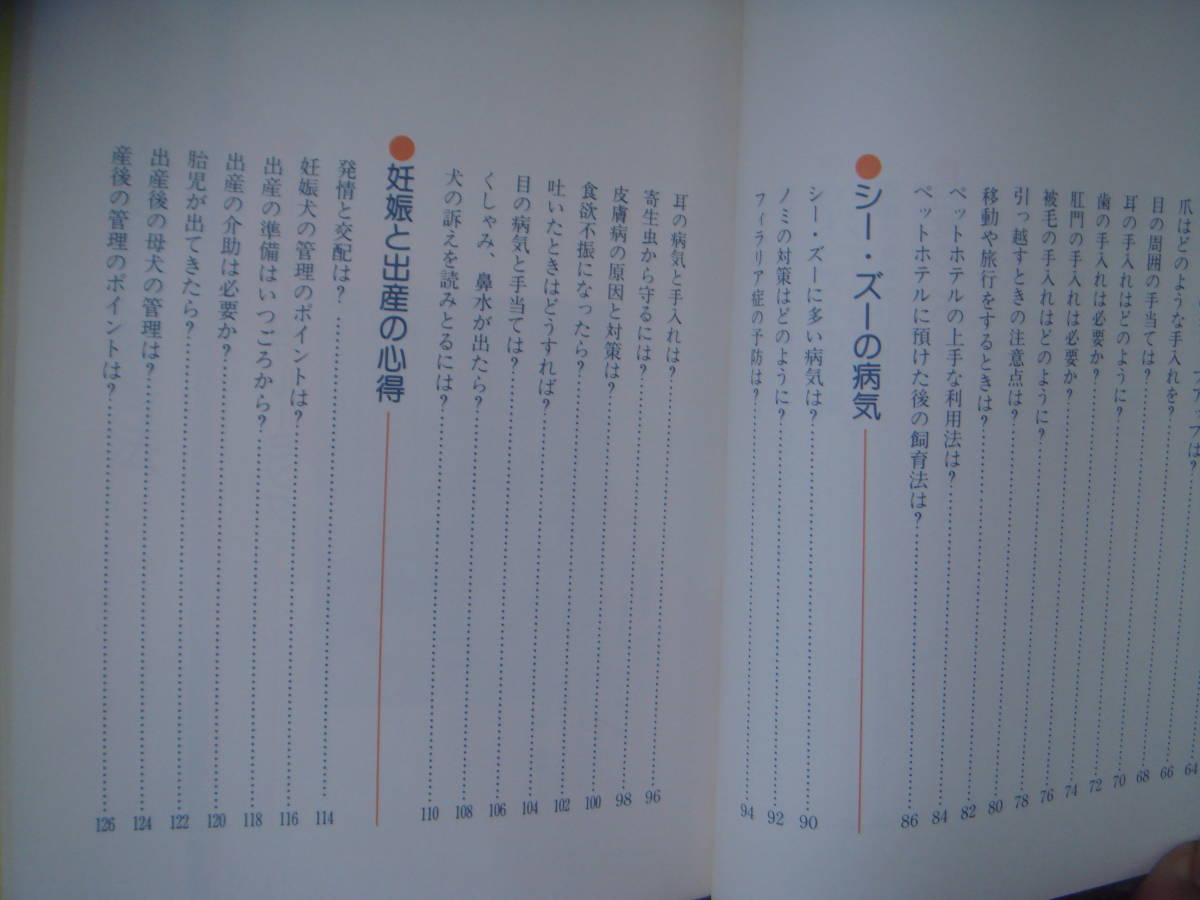 は? 66
爪はどのような手入れを? 68
目の周囲の手当ては? 70
耳の手入れはどのように? 72
歯の手入れは必要か? 74
肛門の手入れは必要か? 76
被毛の手入れはどのように? 78
引っ越すときの注意点は? 80
移動や旅行をするときは? 82
ペットホテルの上手な利用法は? 84
ペットホテルに預けた後の飼育法は? 86
シー・ズーの病気
シー・ズーに多い病気は? 90
ノミの対策はどのように? 92
フィラリア症の予防は? 94
耳の病気と手入れは? 96
寄生虫から守るには? 98
皮膚病の原因と対策は? 100
食欲不振になったら? 102
吐いたときはどうすれば? 104
目の病気と手当ては? 106
くしゃみ、鼻水が出たら? 108
犬の訴えを読みとるには? 110
妊娠と出産の心得
発情と交配は? 114
妊娠犬の管理のポイントは? 116
出産の準備はいつごろから? 118
出産の介助は必要か? 120
胎児が出てきたら? 122
出産後の母犬の管理は? 124
産後の管理のポイントは? 126
64